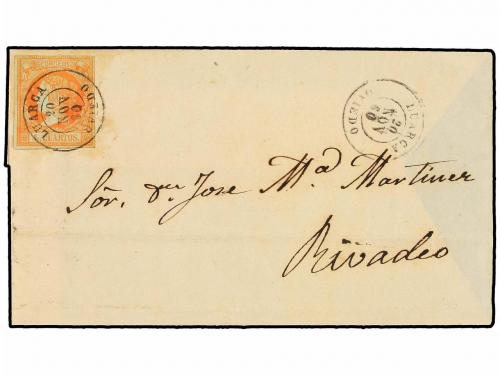 CORREOS
4 CUARTOS.
LUARCA
20
NOV
60
OVIEDO
LUARCA
20
NOV
60
OVIEDO
Sôr. Dn Jose Mª Martinez
Rivadeo